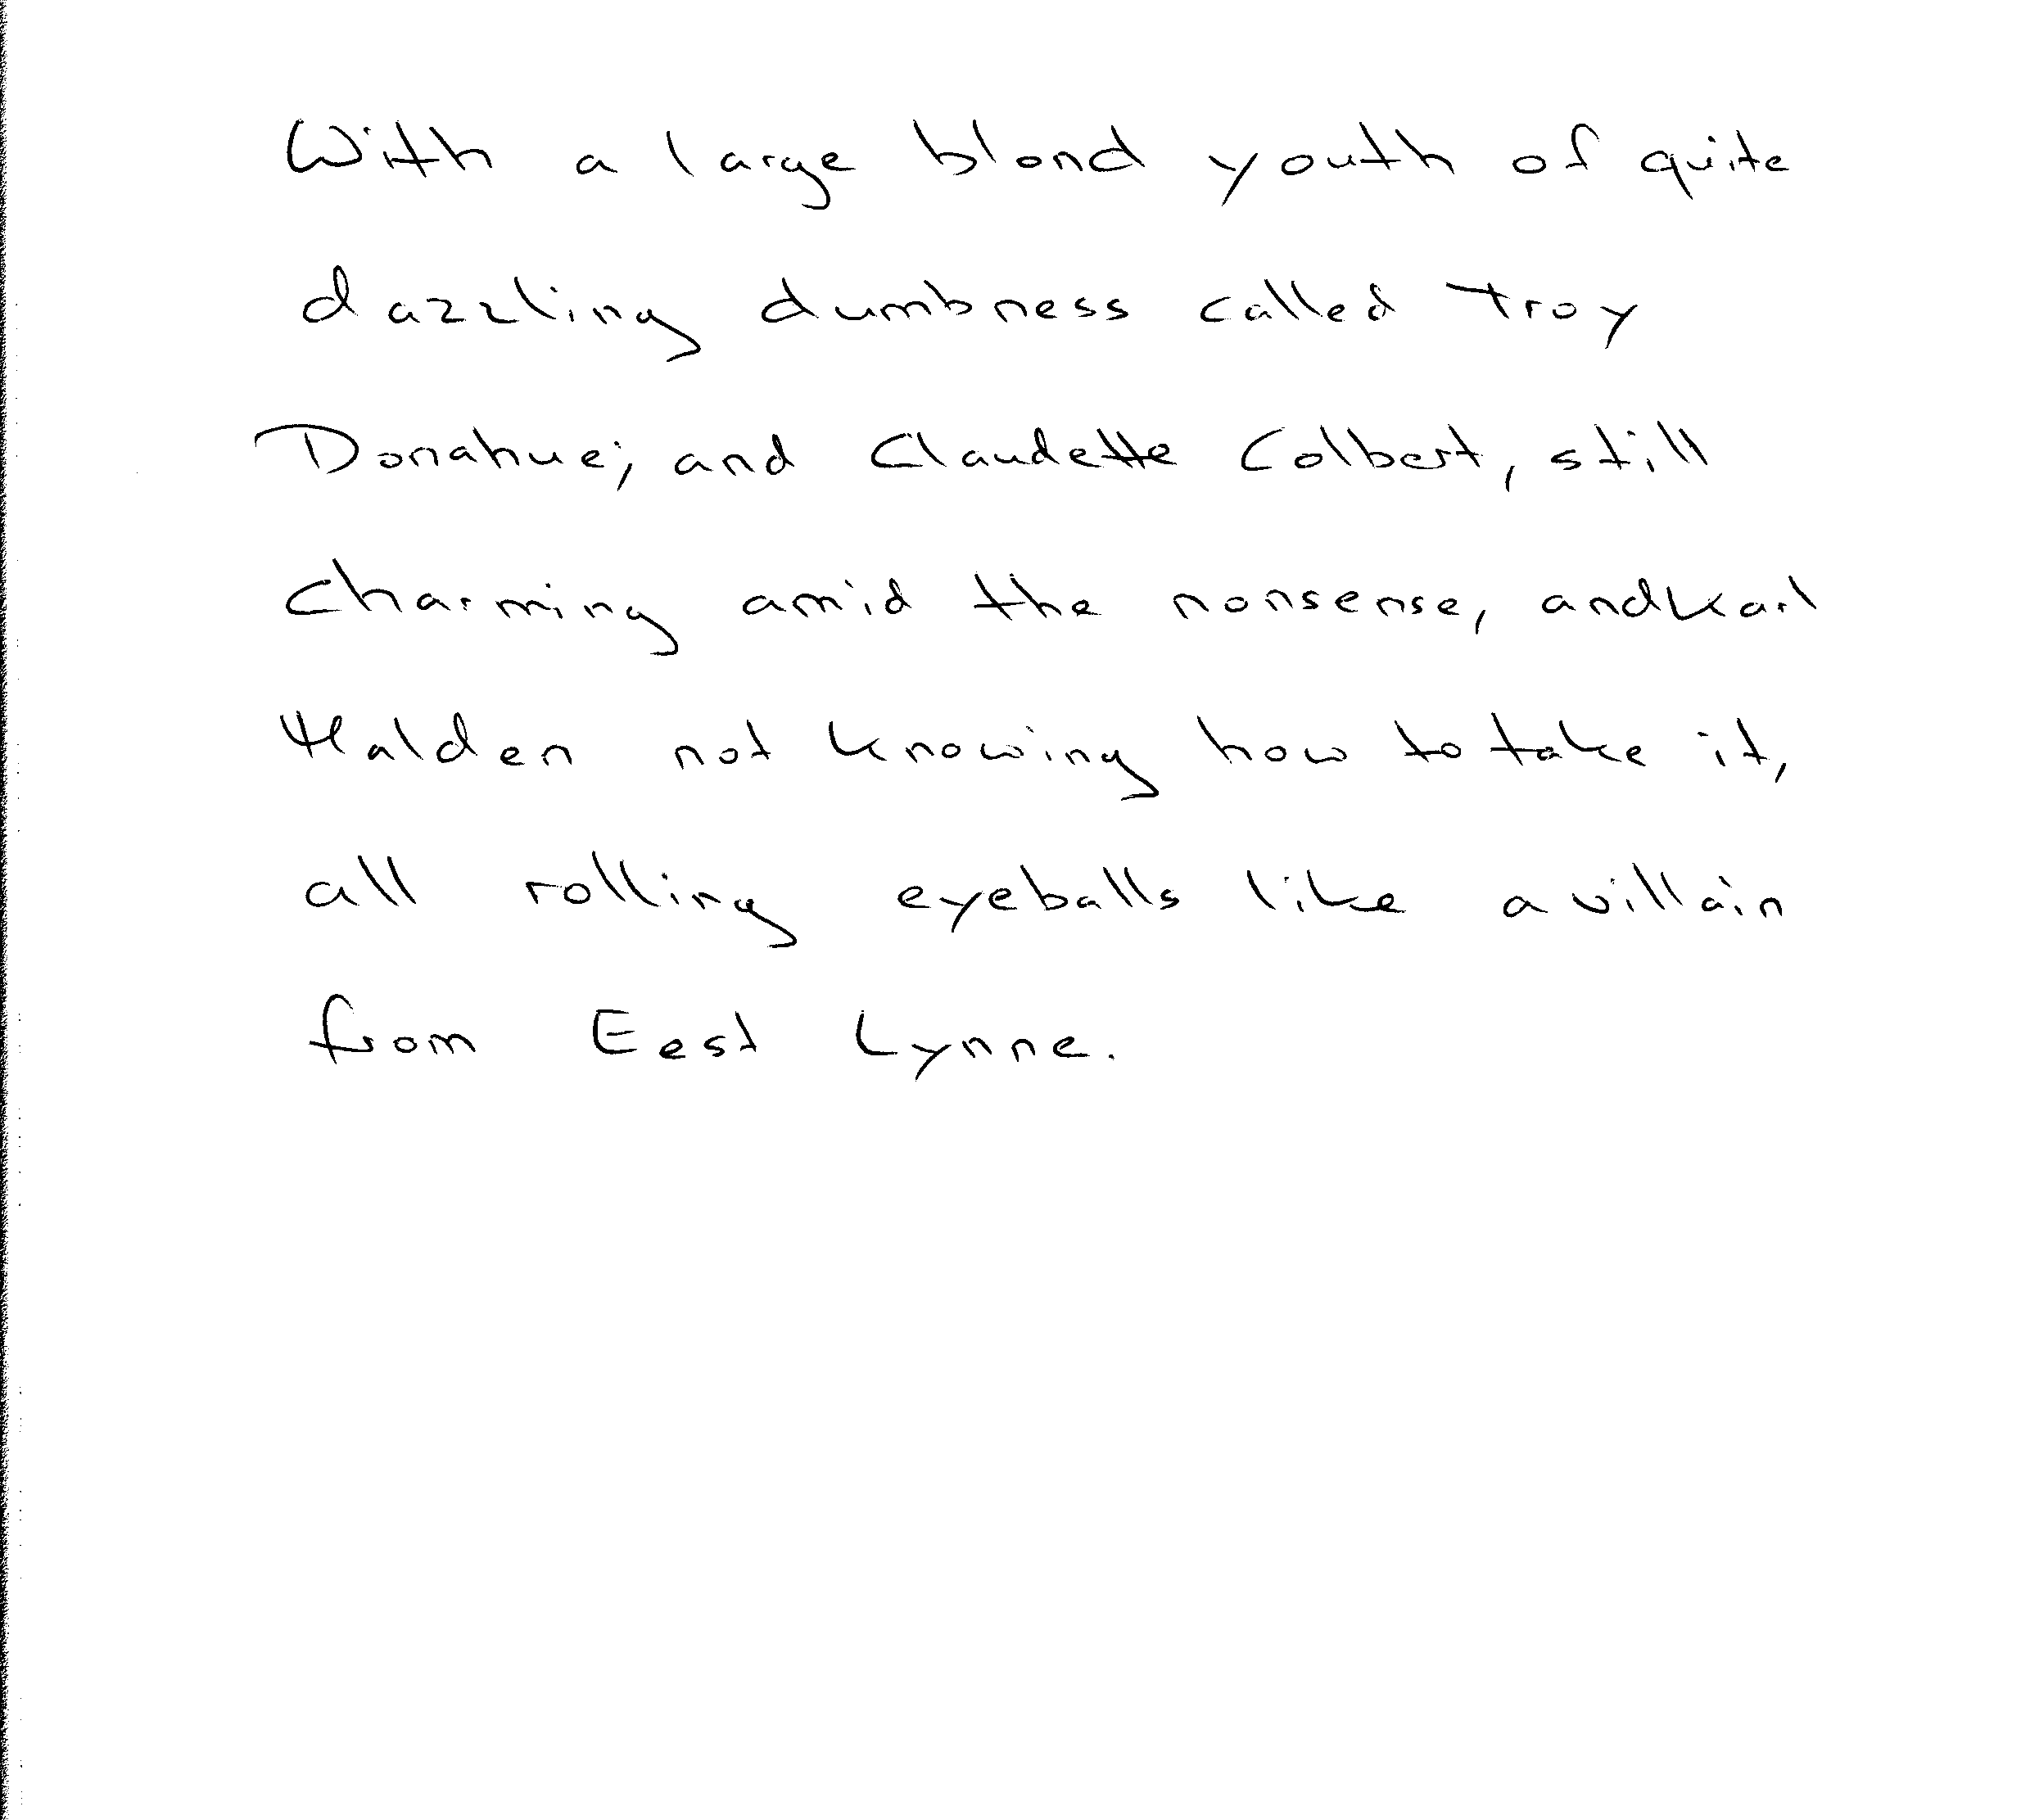 With a large blond youth of quite
dazzling dumbness called Troy
Donahue; and Claudette Colbert, still
charming amid the nonsense, and Karl
Malden not knowing how to take it,
all rolling eyeballs like a villain
from Eest Lynne.